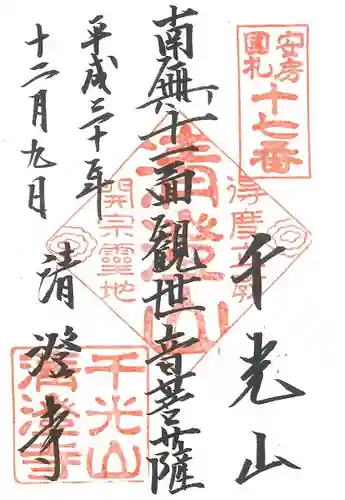 安房
國札
十七番
千光山
南無十一面觀世音菩薩
平成三十年
十二月九日
清澄寺
清澄山
得度
開宗靈地
千光山
清澄寺